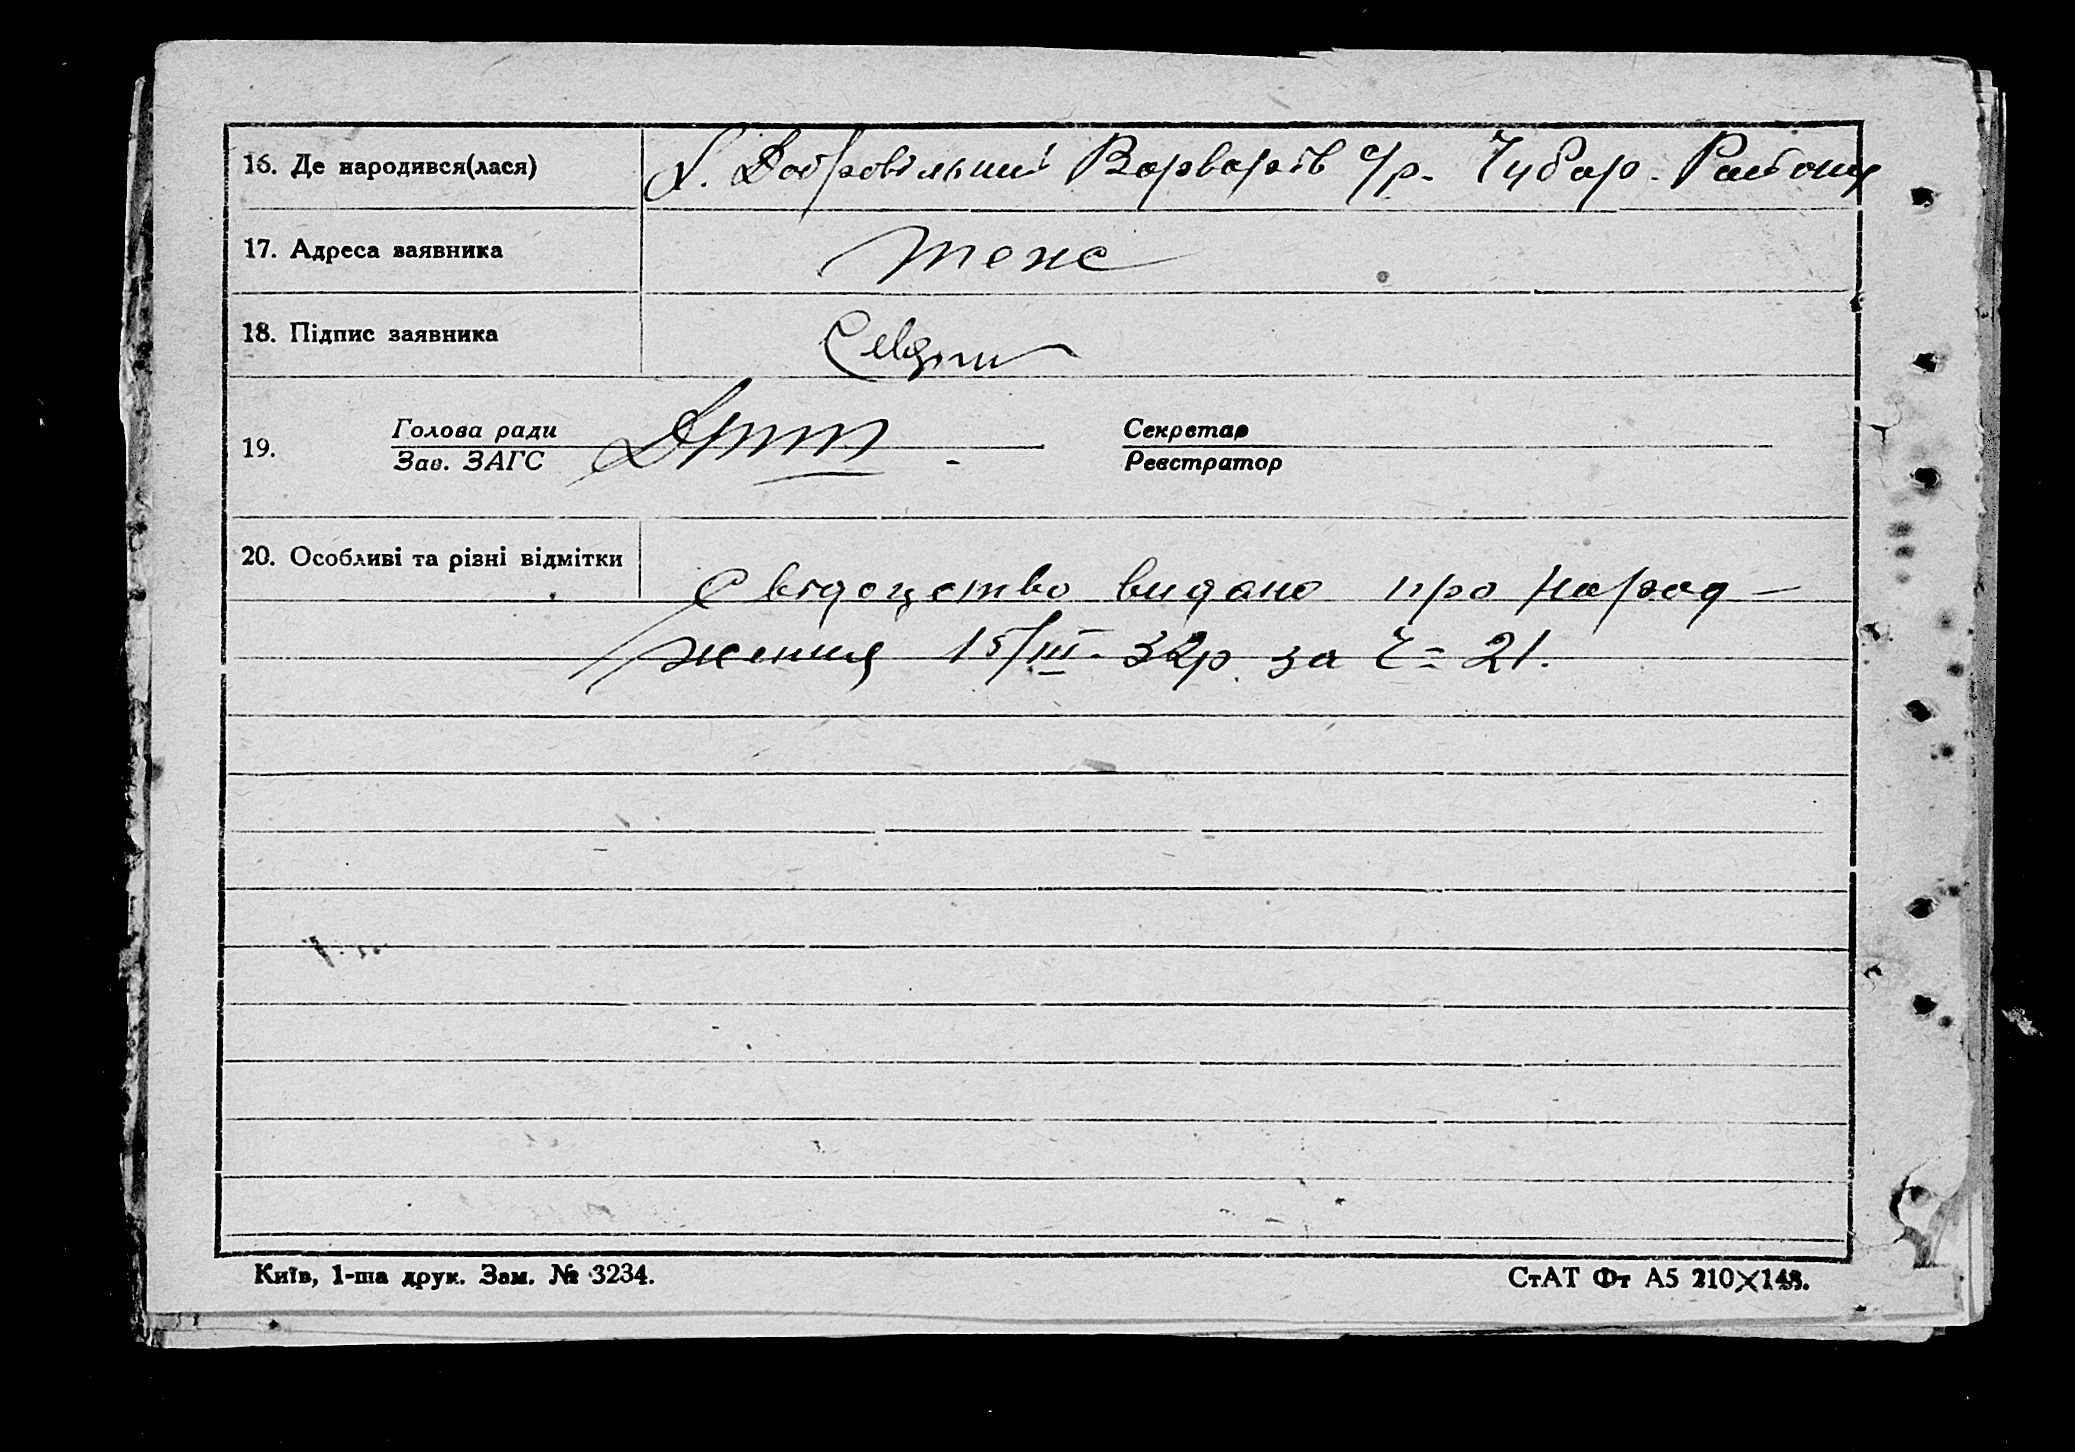 16. Де народився(лася) Х. Добровільний Варварів с/р. Чубар. Району
17. Адреса заявника теж
18. Підпис заявника
19. Голова ради
Зав. ЗАГС
Секретар
Реєстратор
20. Особливі та різні відмітки
Свідоцтво видано про народ–
ження 15/III. 32р. за Ч= 21.
Київ, 1-ша друк. Зам. № 3234.
СтАТ Фт А5 210×148.